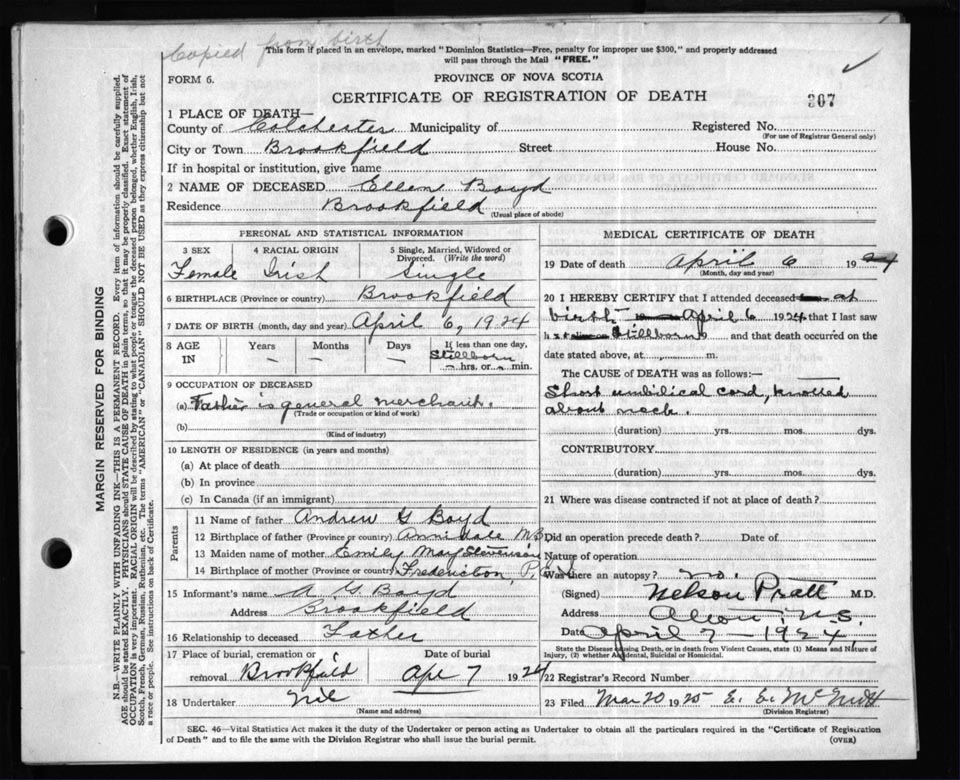 Copied from birth
This form if placed in an envelope, marked "Dominion Statistics—Free, penalty for improper use $300," and properly addressed
will pass through the Mail "FREE."
FORM 6.
PROVINCE OF NOVA SCOTIA
CERTIFICATE OF REGISTRATION OF DEATH
307
1 PLACE OF DEATH—
County of Colchester Municipality of Registered No.
(For use of Registrar General only)
City or Town Brookfield Street House No.
If in hospital or institution, give name
2 NAME OF DECEASED Ellen Boyd
Residence Brookfield
(Usual place of abode)
PERSONAL AND STATISTICAL INFORMATION
3 SEX 4 RACIAL ORIGIN 5 Single, Married, Widowed or
Divorced. (Write the word)
Female Irish Single
6 BIRTHPLACE (Province or country) Brookfield
7 DATE OF BIRTH (month, day and year) April 6, 1924
8 AGE IN Years Months Days If less than one day,
Stillborn
— — — hrs. or min.
9 OCCUPATION OF DECEASED
(a) Father is general merchant.
(Trade or occupation or kind of work)
(b)
(Kind of industry)
10 LENGTH OF RESIDENCE (in years and months)
(a) At place of death
(b) In province
(c) In Canada (if an immigrant)
Parents
11 Name of father Andrew G Boyd
12 Birthplace of father (Province or country) Annidale N.B.
13 Maiden name of mother Emily May Stevenson
14 Birthplace of mother (Province or country) Fredericton, P.E.I.
15 Informant's name A G Boyd
Address Brookfield
16 Relationship to deceased Father
17 Place of burial, cremation or removal Date of burial
Brookfield Apr 7 1924
18 Undertaker Nil
(Name and address)
MEDICAL CERTIFICATE OF DEATH
19 Date of death April 6 1924
(Month, day and year)
20 I HEREBY CERTIFY that I attended deceased at
birth April 6 1924 that I last saw
h Stillborn 9 and that death occurred on the
date stated above, at m.
The CAUSE OF DEATH was as follows:
Short umbilical cord, knotted
about neck.
(duration) yrs. mos. dys.
CONTRIBUTORY
(duration) yrs. mos. dys.
21 Where was disease contracted if not at place of death?
Did an operation precede death? Date of
Nature of operation
Was there an autopsy? no.
(Signed) Nelson Pratt M.D.
Address N.S.
Date April 7 — 1924
State the Disease causing Death, or in death from Violent Causes, state (1) Means and Nature of
Injury, (2) whether Accidental, Suicidal or Homicidal.
22 Registrar's Record Number
23 Filed Mar 20 1925 E. E. McNutt
(Division Registrar)
SEC. 46—Vital Statistics Act makes it the duty of the Undertaker or person acting as Undertaker to obtain all the particulars required in the "Certificate of Registration
of Death" and to file the same with the Division Registrar who shall issue the burial permit. (OVER)
MARGIN RESERVED FOR BINDING
N.B.—WRITE PLAINLY WITH UNFADING INK—THIS IS A PERMANENT RECORD. Every item of information should be carefully supplied.
AGE should be stated EXACTLY. PHYSICIANS should STATE CAUSE OF DEATH in plain terms, so that it may be properly classified. Exact statement of
OCCUPATION is very important. RACIAL ORIGIN will be described by stating to what people or tongue the deceased person belonged, whether English, Irish,
Scotch, French, German, Russian, Ruthenian, etc. The terms "AMERICAN" or "CANADIAN" SHOULD NOT BE USED as they express citizenship but not
a race or people. See instructions on back of Certificate.